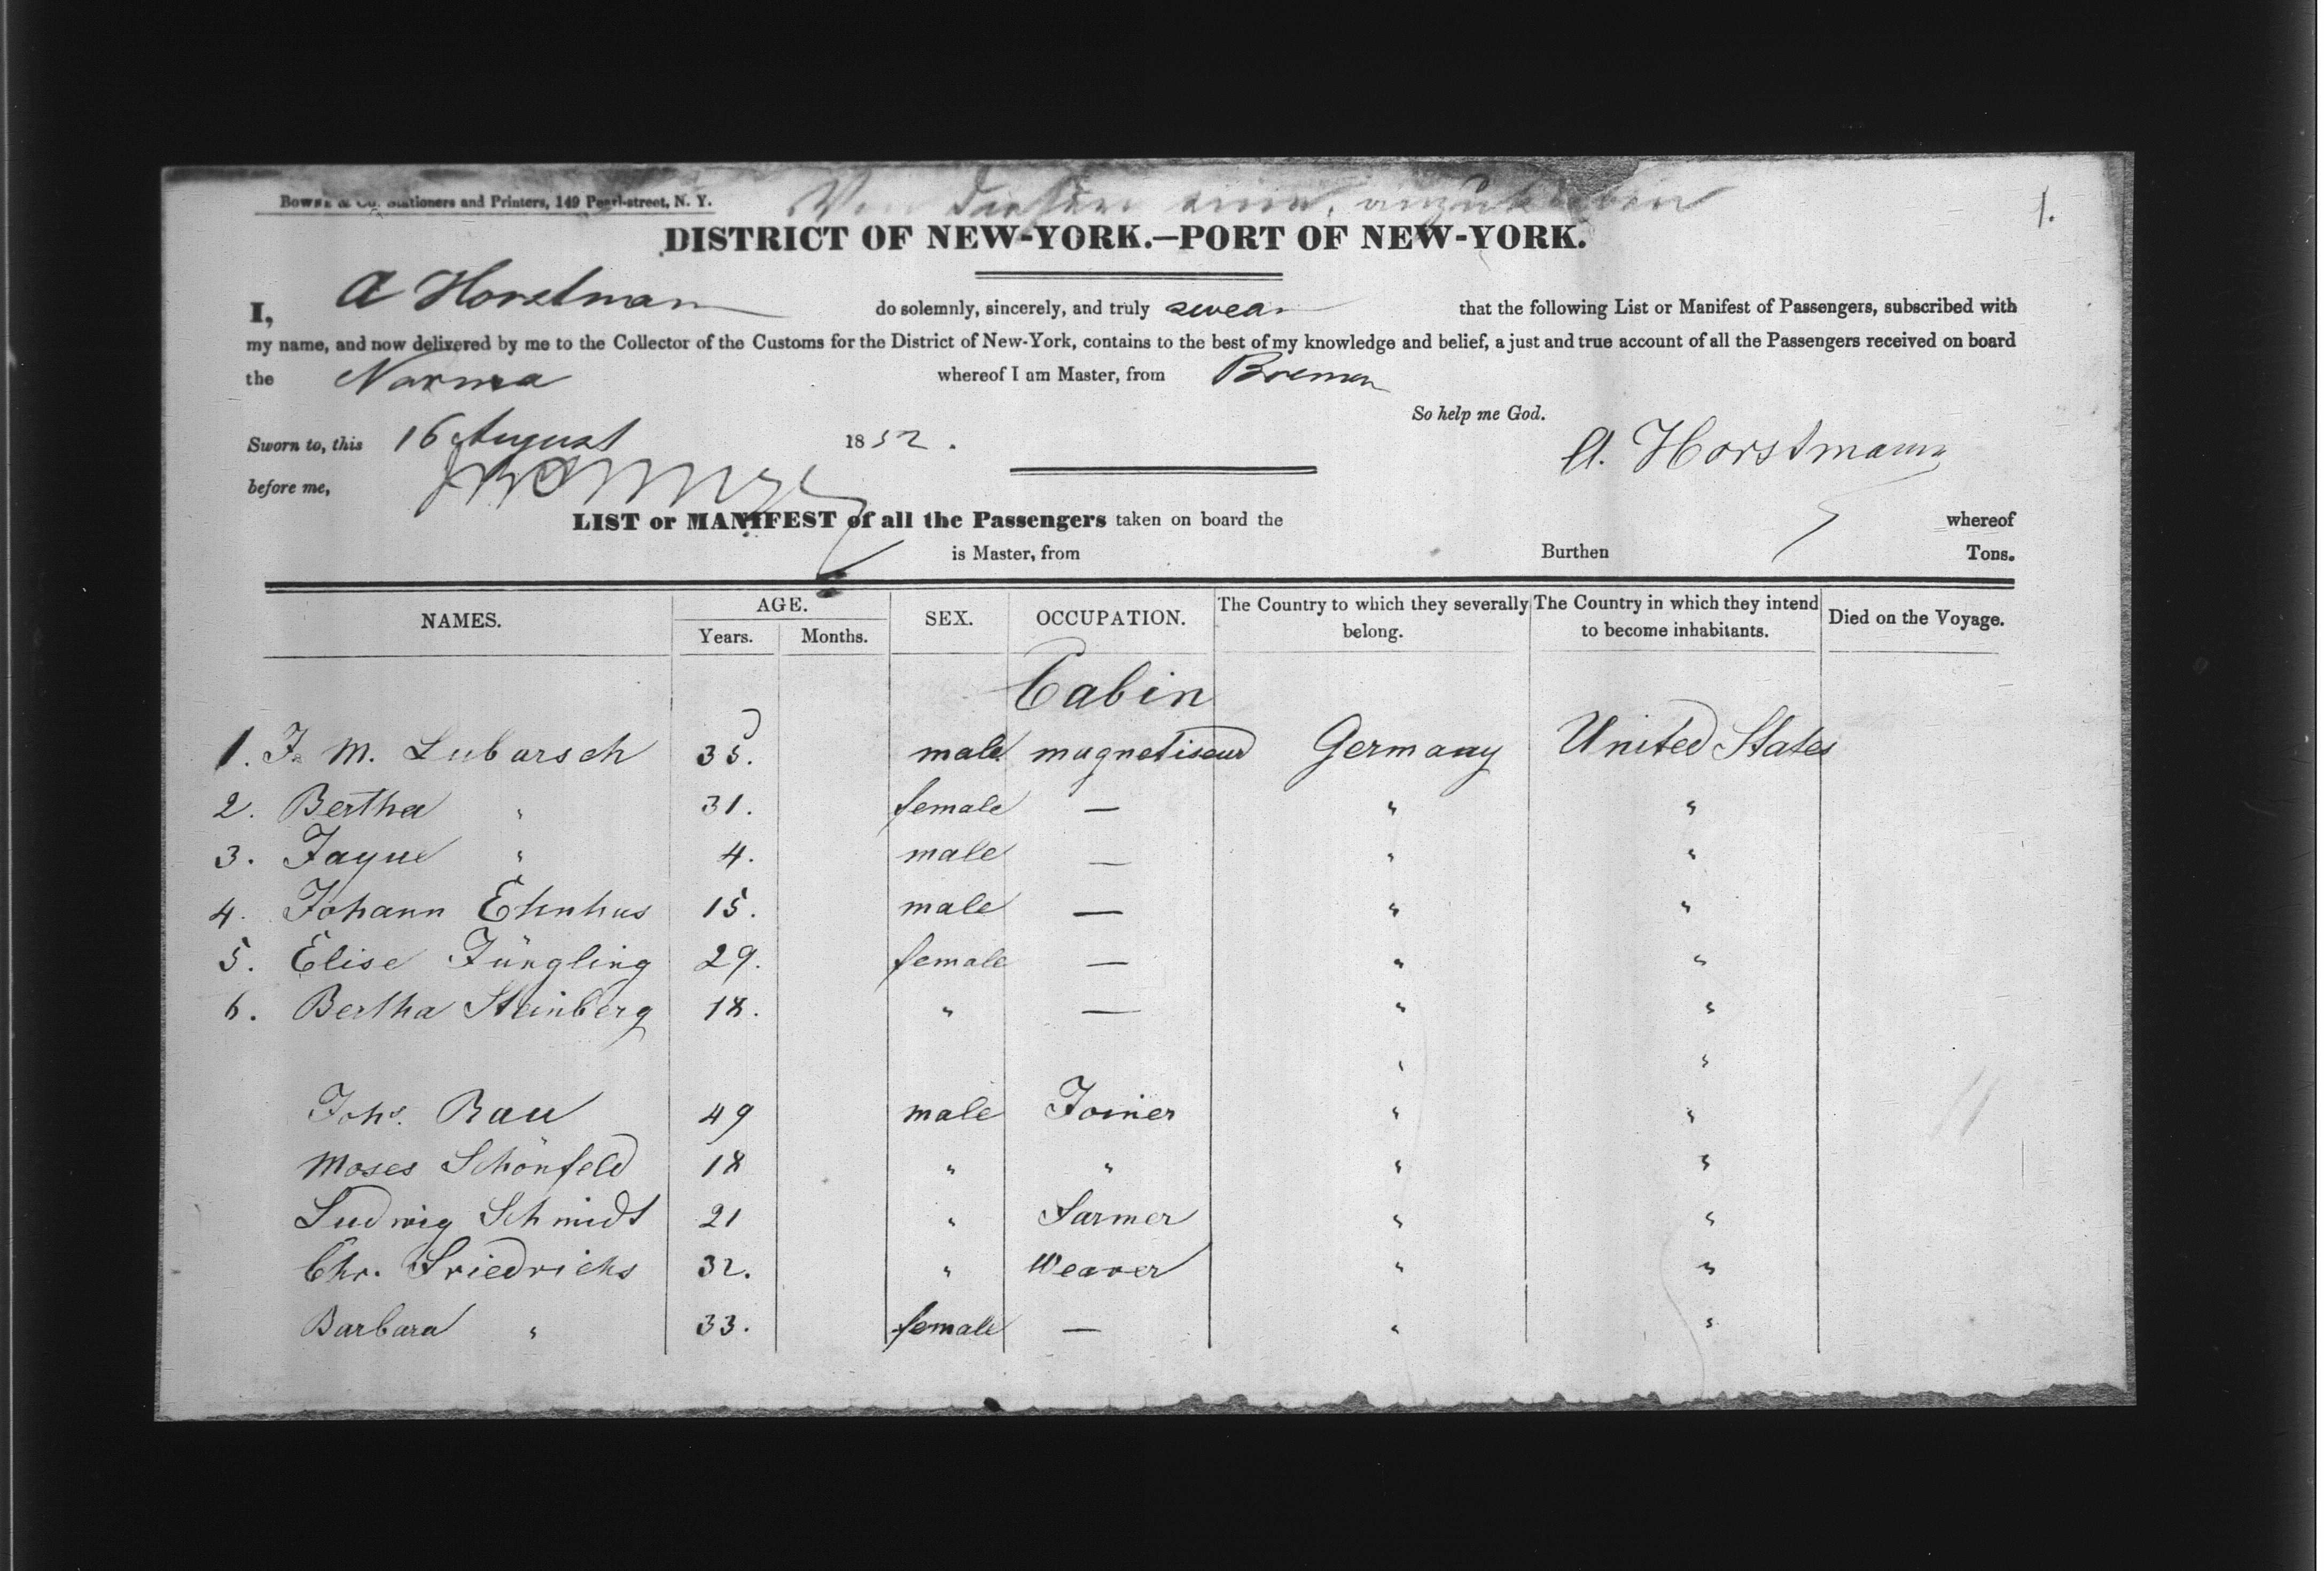 Bowne & Co. Stationers and Printers, 149 Pearl-street, N. Y.
1.
DISTRICT OF NEW-YORK.—PORT OF NEW-YORK.
I, A Horstman do solemnly, sincerely, and truly swear that the following List or Manifest of Passengers, subscribed with
my name, and now delivered by me to the Collector of the Customs for the District of New-York, contains to the best of my knowledge and belief, a just and true account of all the Passengers received on board
the Norma whereof I am Master, from Bremen
So help me God.
Sworn to, this 16 August 1852.
A. Horstmann
before me,
LIST or MANIFEST of all the Passengers taken on board the whereof
is Master, from Burthen Tons.
NAMES. AGE. Years. Months. SEX. OCCUPATION. The Country to which they severally belong. The Country in which they intend to become inhabitants. Died on the Voyage.
Cabin
1. J. M. Lubarsch 35. male magnetiseur Germany United States
2. Bertha " 31. female — " "
3. " 4. male — " "
4. Johann 15. male — " "
5. Elise Jüngling 29. female — " "
6. Bertha Steinberg 18. " — " "
" "
Johs. Bau 49 male Joiner " "
Moses Schönfeld 18 " " " "
Ludwig Schmidt 21 " farmer " "
Chr. Friedrichs 32. " Weaver " "
Barbara " 33. female — " "